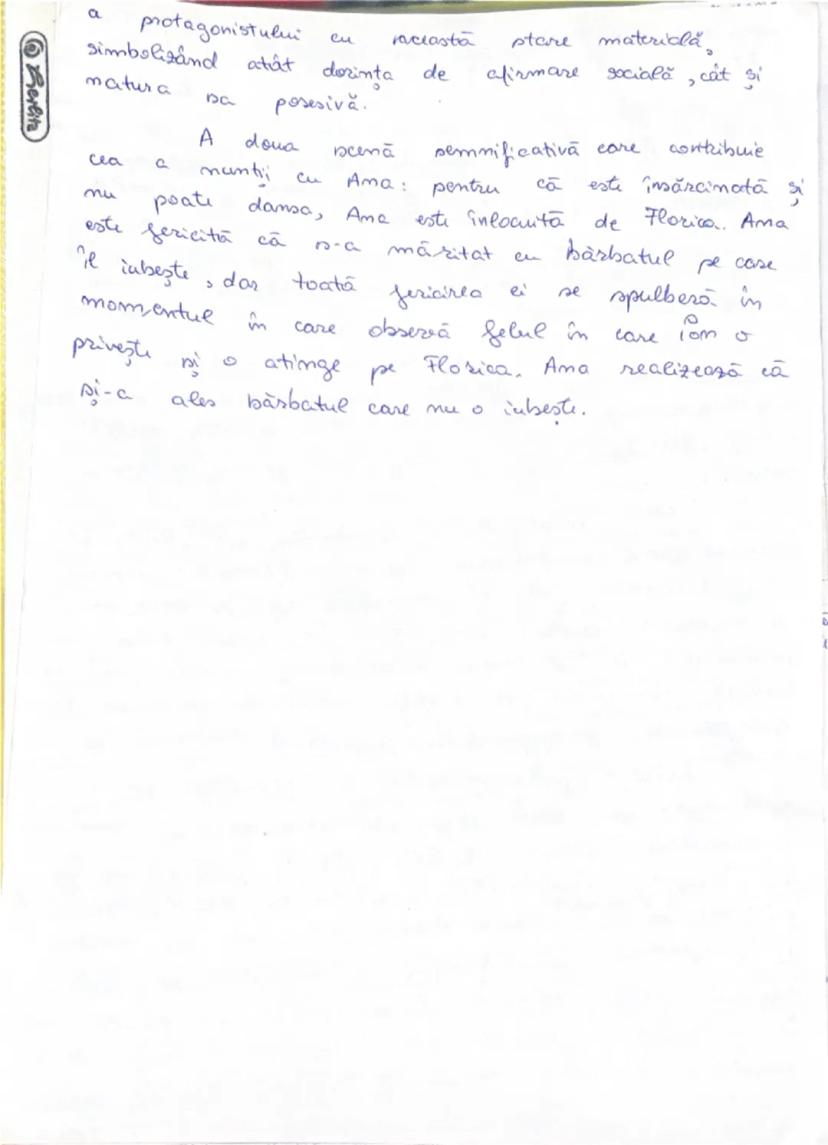 a protagonistului cu această stare materială,
simbolizând atât dorința de afirmare socială, cât și
natura sa posesivă.
A doua scenă semnificativă care contribuie
cea a nunții cu Ana: pentru că este însărcinată și
nu poate dansa, Ana este înlocuită de Florica. Ana
este fericită că s-a măritat cu bărbatul pe care
îl iubește, dar toată fericirea ei se spulberă în
momentul în care observă felul în care Ion o
privește și o atinge pe Florica. Ana realizează că
și-a ales bărbatul care nu o iubește.